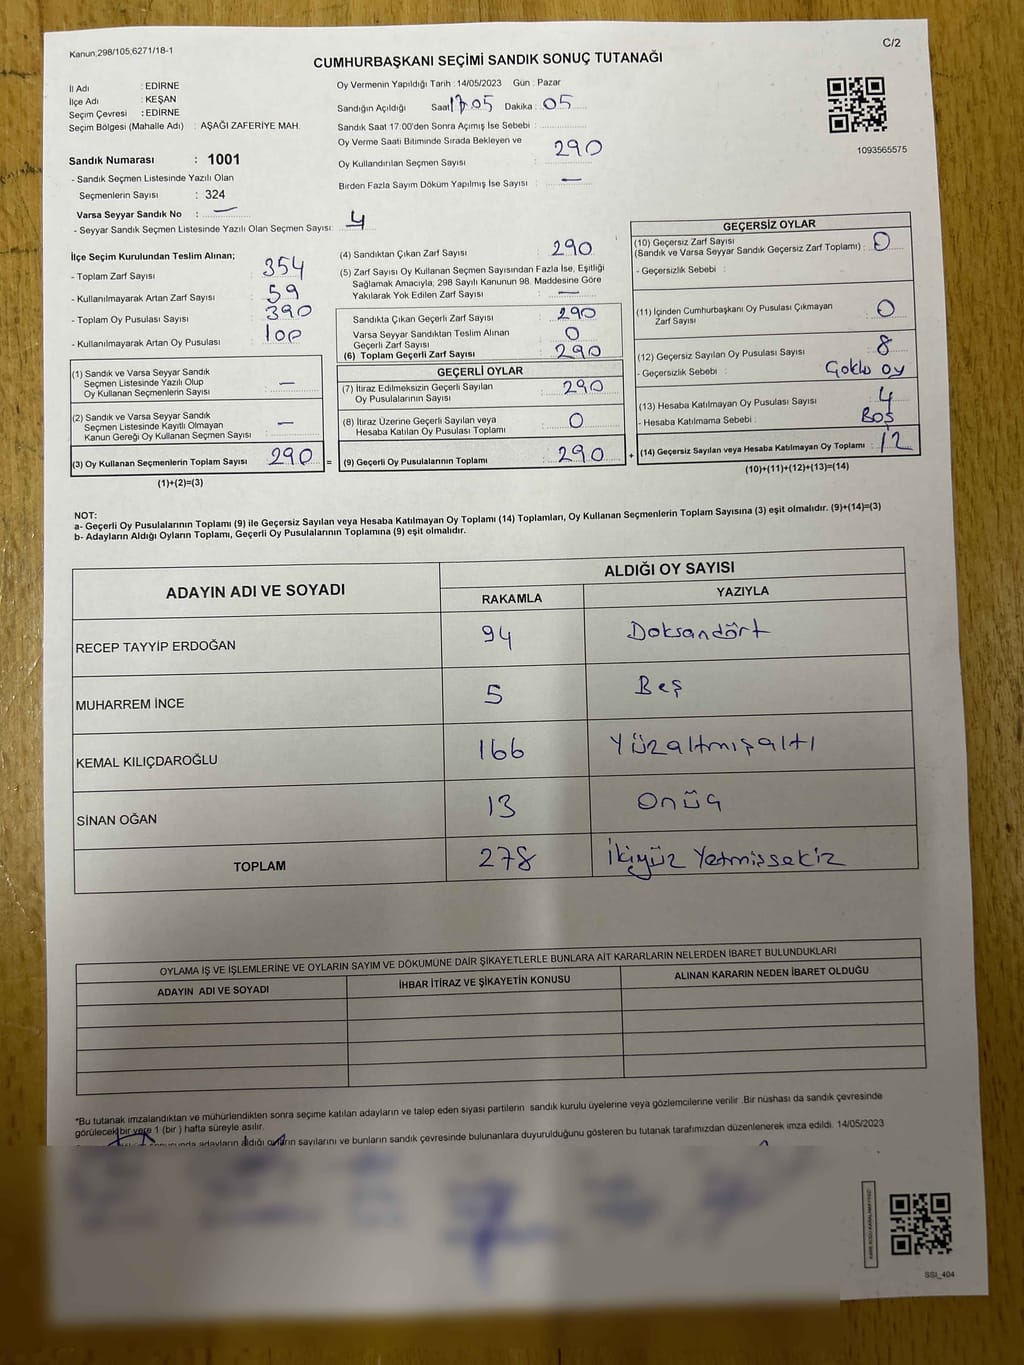 Kanun;298/105;6271/18-1
C/2
CUMHURBAŞKANI SEÇİMİ SANDIK SONUÇ TUTANAĞI
İl Adı : EDİRNE
İlçe Adı : KEŞAN
Seçim Çevresi : EDİRNE
Seçim Bölgesi (Mahalle Adı) : AŞAĞI ZAFERİYE MAH.
Sandık Numarası : 1001
- Sandık Seçmen Listesinde Yazılı Olan
Seçmenlerin Sayısı : 324
Varsa Seyyar Sandık No : —
- Seyyar Sandık Seçmen Listesinde Yazılı Olan Seçmen Sayısı: 4
Oy Vermenin Yapıldığı Tarih : 14/05/2023 Gün : Pazar
Sandığın Açıldığı Saat 17 05 Dakika : 05
Sandık Saat 17:00'den Sonra Açımış İse Sebebi :
Oy Verme Saati Bitiminde Sırada Bekleyen ve
Oy Kullandırılan Seçmen Sayısı : 290
Birden Fazla Sayım Döküm Yapılmış İse Sayısı : —
1093565575
İlçe Seçim Kurulundan Teslim Alınan;
- Toplam Zarf Sayısı : 354
- Kullanılmayarak Artan Zarf Sayısı : 59
- Toplam Oy Pusulası Sayısı : 390
- Kullanılmayarak Artan Oy Pusulası : 100
(1) Sandık ve Varsa Seyyar Sandık
Seçmen Listesinde Yazılı Olup
Oy Kullanan Seçmenlerin Sayısı : —
(2) Sandık ve Varsa Seyyar Sandık
Seçmen Listesinde Kayıtlı Olmayan
Kanun Gereği Oy Kullanan Seçmen Sayısı : —
(3) Oy Kullanan Seçmenlerin Toplam Sayısı : 290 =
(1)+(2)=(3)
(4) Sandıktan Çıkan Zarf Sayısı : 290
(5) Zarf Sayısı Oy Kullanan Seçmen Sayısından Fazla İse, Eşitliği
Sağlamak Amacıyla; 298 Sayılı Kanunun 98. Maddesine Göre
Yakılarak Yok Edilen Zarf Sayısı : —
Sandıkta Çıkan Geçerli Zarf Sayısı : 290
Varsa Seyyar Sandıktan Teslim Alınan
Geçerli Zarf Sayısı : 0
(6) Toplam Geçerli Zarf Sayısı : 290
GEÇERLİ OYLAR
(7) İtiraz Edilmeksizin Geçerli Sayılan
Oy Pusulasının Sayısı : 290
(8) İtiraz Üzerine Geçerli Sayılan veya
Hesaba Katılan Oy Pusulası Toplamı : 0
(9) Geçerli Oy Pusulalarının Toplamı : 290 +
GEÇERSİZ OYLAR
(10) Geçersiz Zarf Sayısı : 0
(Sandık ve Varsa Seyyar Sandık Geçersiz Zarf Toplamı)
- Geçersizlik Sebebi :
(11) İçinden Cumhurbaşkanı Oy Pusulası Çıkmayan
Zarf Sayısı : 0
(12) Geçersiz Sayılan Oy Pusulası Sayısı : 8
- Geçersizlik Sebebi : Çoklu oy
(13) Hesaba Katılmayan Oy Pusulası Sayısı : 4
- Hesaba Katılmama Sebebi : Boş
(14) Geçersiz Sayılan veya Hesaba Katılmayan Oy Toplamı : 12
(10)+(11)+(12)+(13)=(14)
NOT:
a- Geçerli Oy Pusulalarının Toplamı (9) ile Geçersiz Sayılan veya Hesaba Katılmayan Oy Toplamı (14) Toplamları, Oy Kullanan Seçmenlerin Toplam Sayısına (3) eşit olmalıdır. (9)+(14)=(3)
b- Adayların Aldığı Oyların Toplamı, Geçerli Oy Pusulalarının Toplamına (9) eşit olmalıdır.
ADAYIN ADI VE SOYADI
ALDIĞI OY SAYISI
RAKAMLA YAZIYLA
RECEP TAYYİP ERDOĞAN 94 Doksandört
MUHARREM İNCE 5 Beş
KEMAL KILIÇDAROĞLU 166 Yüzaltmışaltı
SİNAN OĞAN 13 Onüç
TOPLAM 278 İkiyüz Yetmişsekiz
OYLAMA İŞ VE İŞLEMLERİNE VE OYLARIN SAYIM VE DÖKÜMÜNE DAİR ŞİKAYETLERLE BUNLARA AİT KARARLARIN NELERDEN İBARET BULUNDUKLARI
ADAYIN ADI VE SOYADI İHBAR İTİRAZ VE ŞİKAYETİN KONUSU ALINAN KARARIN NEDEN İBARET OLDUĞU
*Bu tutanak imzalandıktan ve mühürlendikten sonra seçime katılan adayların ve talep eden siyasi partilerin sandık kurulu üyelerine veya gözlemcilerine verilir .Bir nüshası da sandık çevresinde
görülecek bir yere 1 (bir ) hafta süreyle asılır.
adayların aldığı oyların sayılarını ve bunların sandık çevresinde bulunanlara duyurulduğunu gösteren bu tutanak tarafımızdan düzenlenerek imza edildi. 14/05/2023
SSI_404